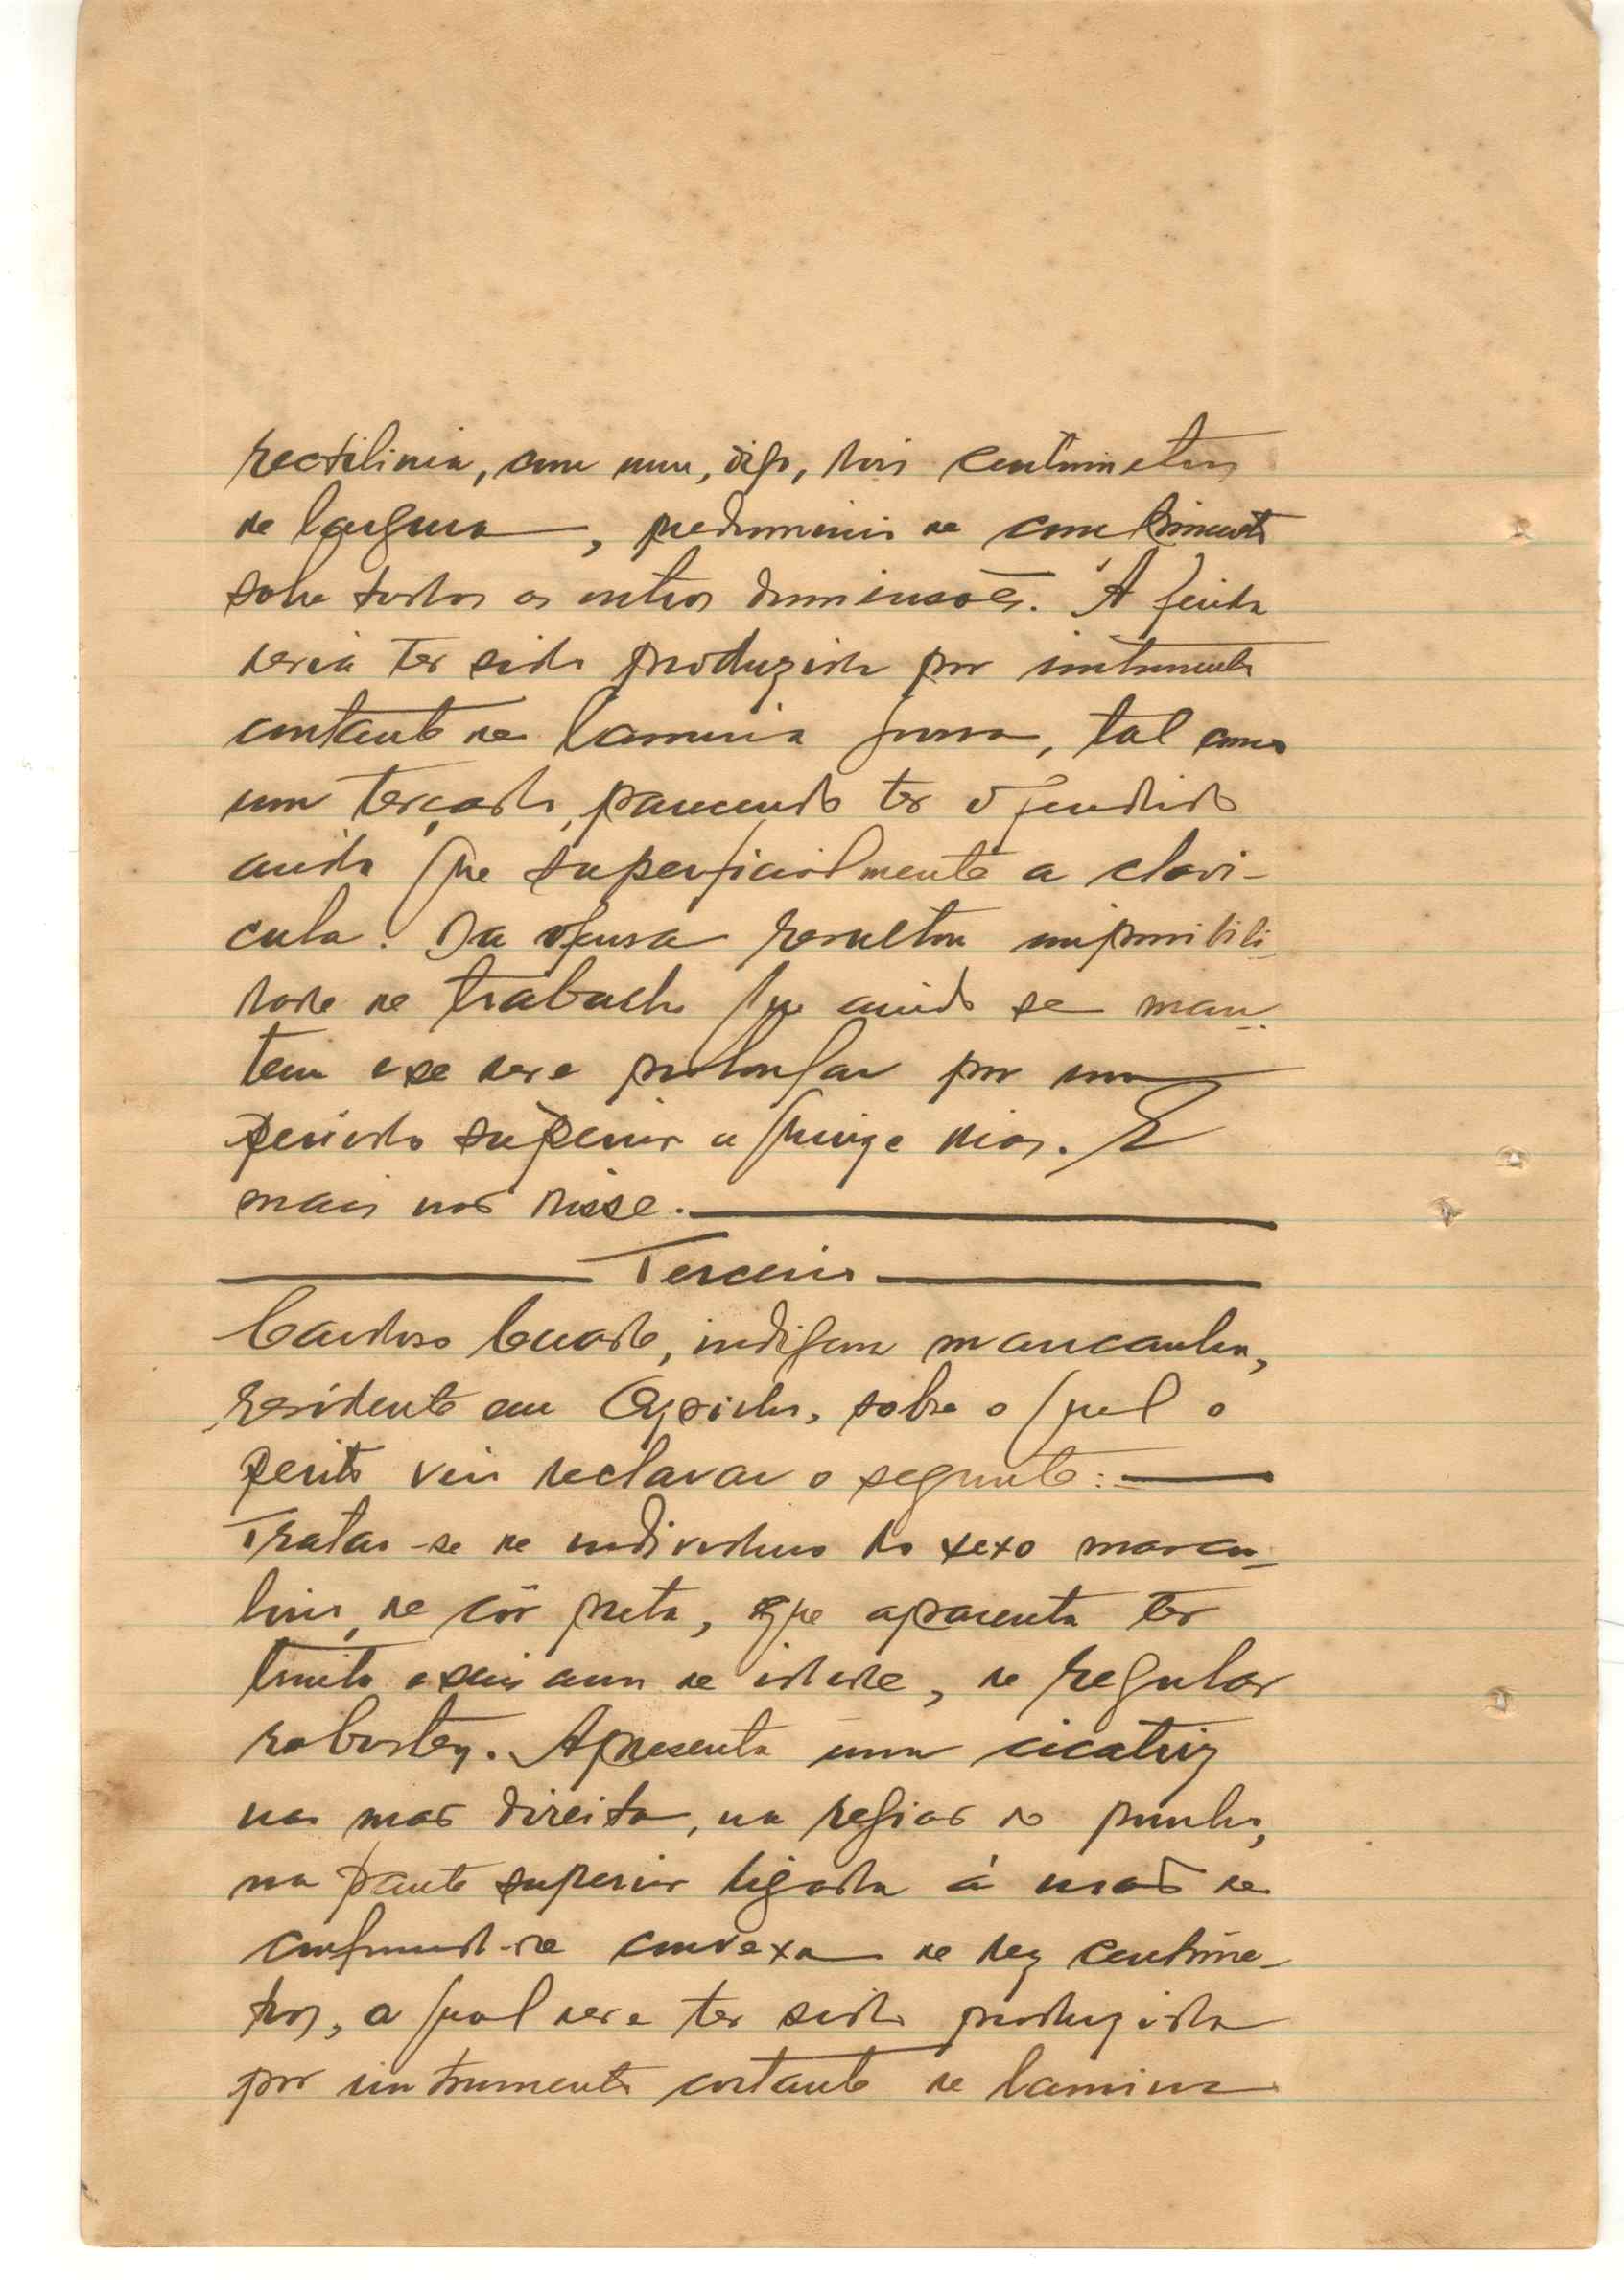 rectilinia, com um, digo, dois centimetros
de largura, predominio de comprimento
sobre todas as outras dimensões. A ferida
devia ter sido produzida por instrumento
cortante de lamina grossa, tal como
um terçado, parecendo ter ofendido
ainda que superficialmente a clavi-
cula. Da ofensa resultou impossibili-
dade de trabalho que ainda se man-
tem e se deve prolongar por um
periodo superior a quinze dias. E
mais não disse.
Terceiro
Cardoso, indigena mancanha,
residente em sobre o qual o
perito veio declarar o seguinte:
Tratar-se de individuo do sexo mascu-
lino, de côr preta, que aparenta ter
trinta e seis anos de idade, de regular
robustez. Apresenta uma cicatriz
na mão direita, na região do punho,
na parte superior ligada á mão de
convexa de dez centime-
tros, a qual deve ter sido produzida
por instrumento cortante de lamina